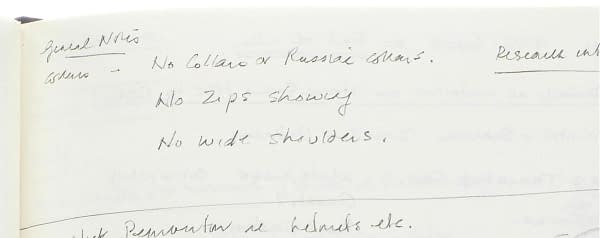 General Notes
Collars – No Collars or Russian collars. Research int
No Zips showing
No wide shoulders.
re helmets etc.